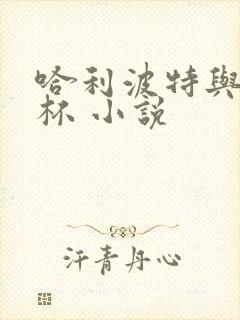 哈利波特與
杯 小說
汗青丹心